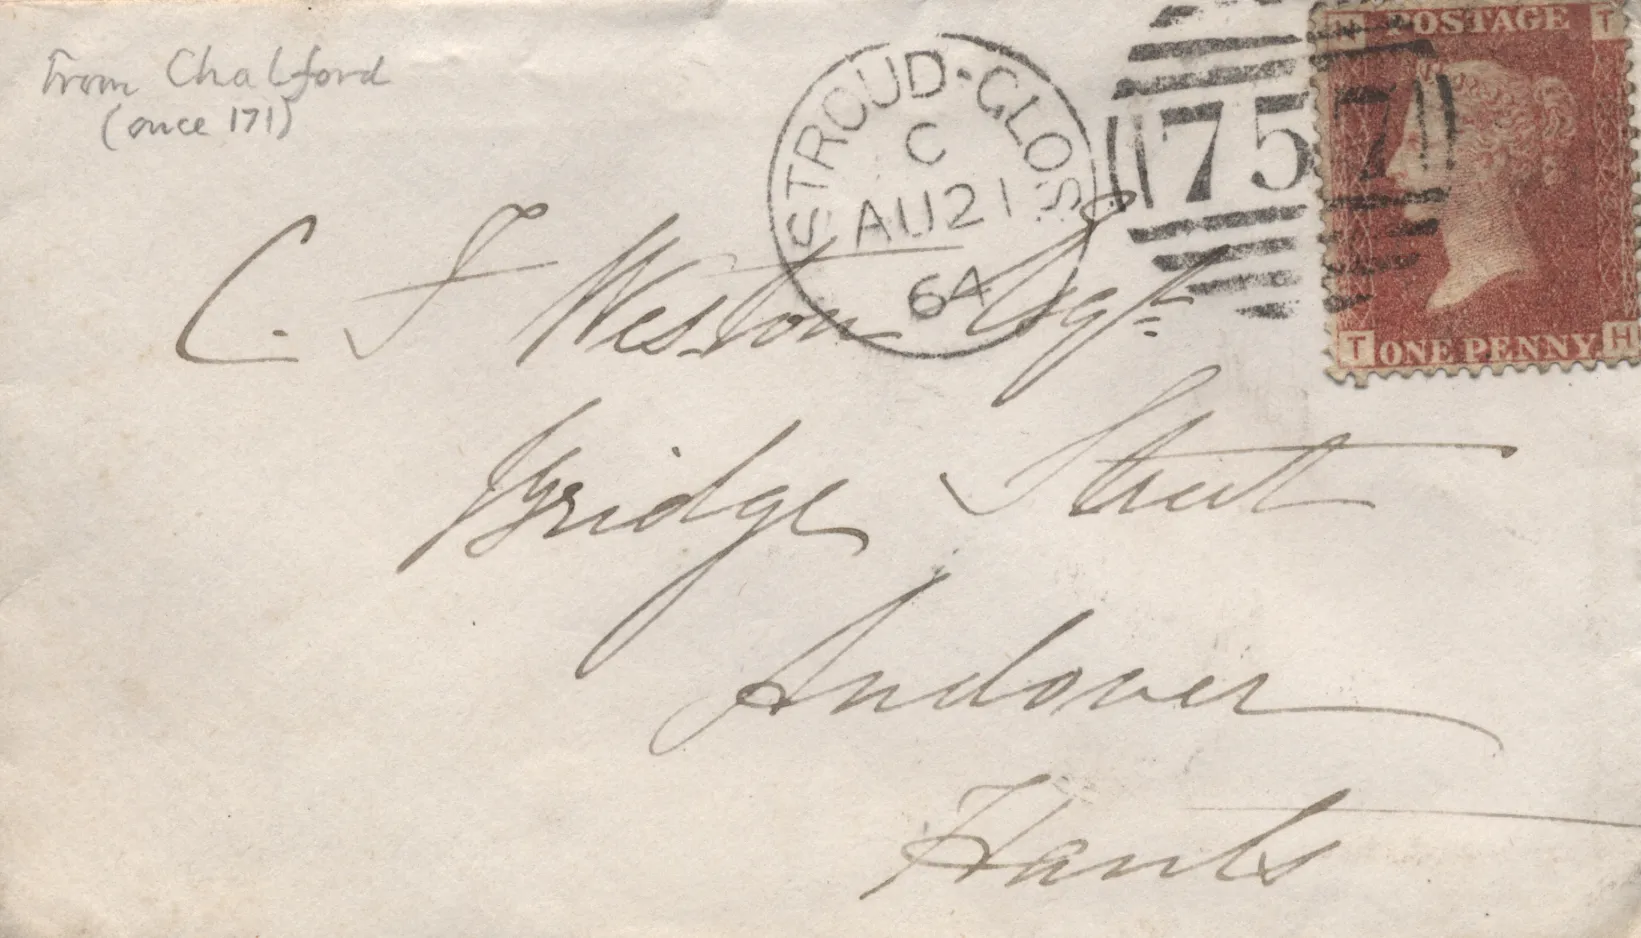 From Chalford
(once 171)
STROUD·GLOS
C
AU 21
64
757
H POSTAGE T
T ONE PENNY H
C. F Weston Esqr.
Bridge Street
Andover
Hants